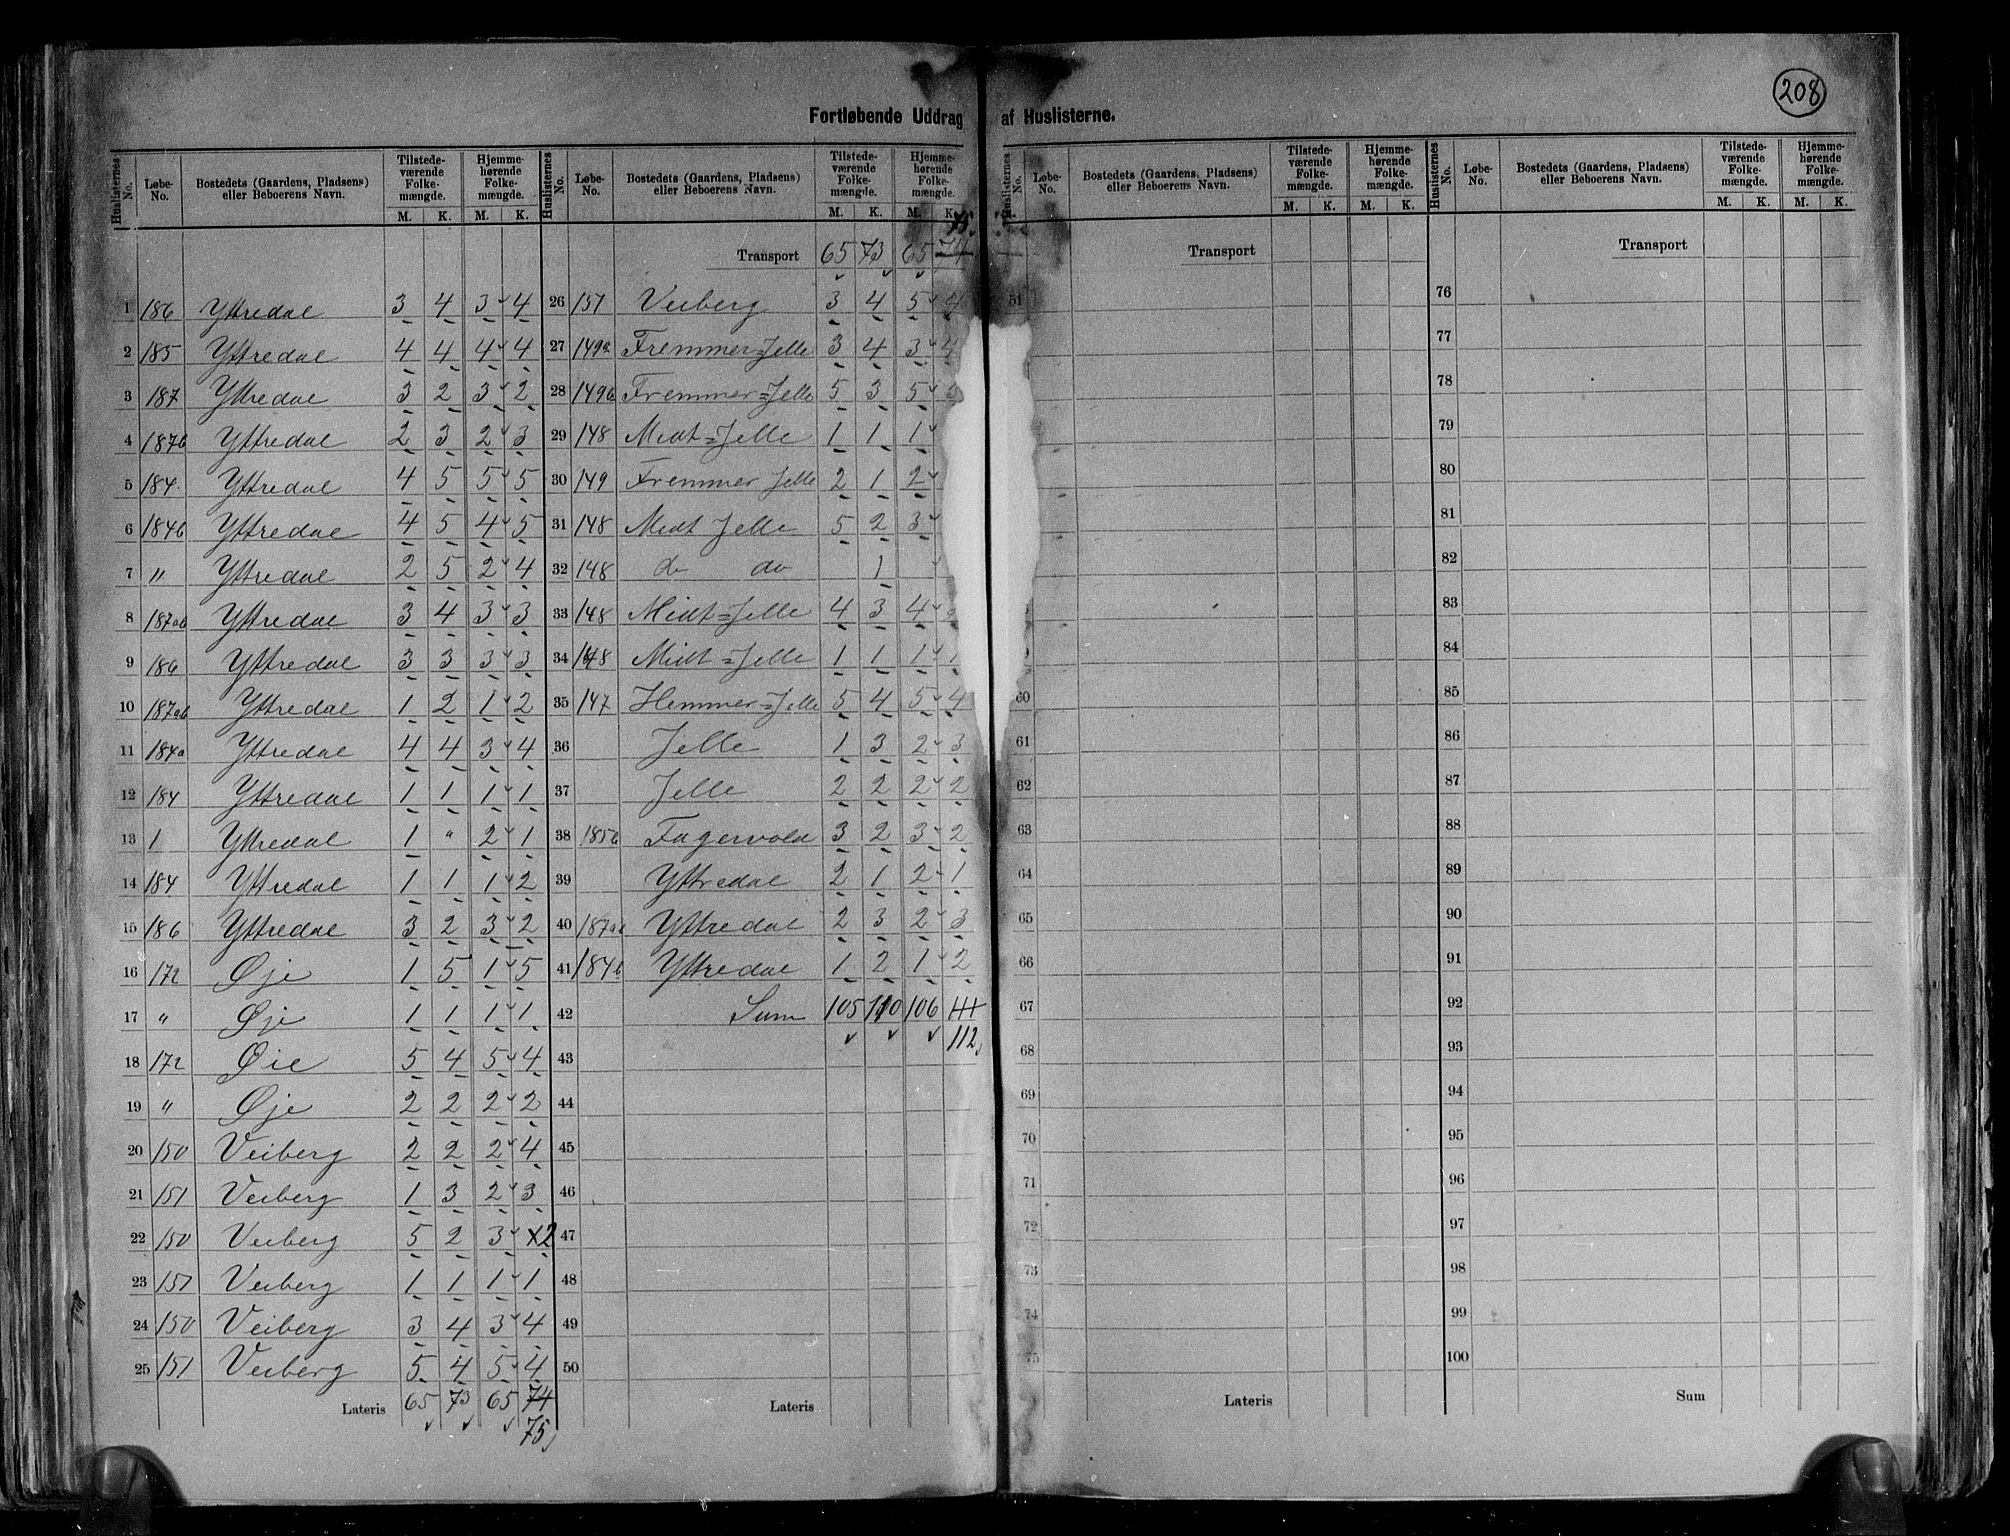 208
Fortløbende Uddrag af Huslisterne.
Huslisternes No. Løbe-No. Bostedets (Gaardens, Pladsens) eller Beboerens Navn. Tilstedeværende Folkemængde. M. K. Hjemmehørende Folkemængde. M. K.
1 186 Yttredal 3 4 3 4
2 185 Yttredal 4 4 4 4
3 187 Yttredal 3 2 3 2
4 187b Yttredal 2 3 2 3
5 184. Yttredal 4 5 5 5
6 184b Yttredal 4 5 4 5
7 " Yttredal 2 5 2 4
8 187ab Yttredal 3 4 3 3
9 186 Yttredal 3 3 3 3
10 187ab Yttredal 1 2 1 2
11 184a Yttredal 4 4 3 4
12 184 Yttredal 1 1 1 1
13 1 Yttredal 1 " 2 1
14 184 Yttredal 1 1 1 2
15 186 Yttredal 3 2 3 2
16 172 Øje 1 5 1 5
17 " Øje 1 1 1 1
18 172 Øie 5 4 5 4
19 " Øje 2 2 2 2
20 150 Veiberg 2 2 2 4
21 151 Veiberg 1 3 2 3
22 150 Veiberg 5 2 3 2
23 151 Veiberg 1 1 1 1
24 150 Veiberg 3 4 3 4
25 151 Veiberg 5 4 5 4
Lateris 65 73 65 74
75
Huslisternes No. Løbe-No. Bostedets (Gaardens, Pladsens) eller Beboerens Navn. Tilstedeværende Folkemængde. M. K. Hjemmehørende Folkemængde. M. K.
75.
Transport 65 73 65 74
26 151 Veiberg 3 4 5 4
27 149a Fremmer=Jelle 3 4 3 4
28 149b Fremmer=Jelle 5 3 5
29 148 Midt=Jelle 1 1 1
30 149 Fremmer Jelle 2 1 2
31 148 Midt Jelle 5 2 3
32 148 do do 1
33 148 Midt=Jelle 4 3 4
34 148 Midt=Jelle 1 1 1 1
35 147 Hemmer=Jelle 5 4 5 4
36 Jelle 1 3 2 3
37 Jelle 2 2 2 2
38 185b Fagervold 3 2 3 2
39 Yttredal 2 1 2 1
40 187ab Yttredal 2 3 2 3
41 184b Yttredal 1 2 1 2
42 Sum 105 110 106 111
112
43
44
45
46
47
48
49
50
Lateris
Huslisternes No. Løbe-No. Bostedets (Gaardens, Pladsens) eller Beboerens Navn. Tilstedeværende Folkemængde. M. K. Hjemmehørende Folkemængde. M. K.
Transport
51
60
61
62
63
64
65
66
67
68
69
70
71
72
73
74
75
Lateris
Huslisternes No. Løbe-No. Bostedets (Gaardens, Pladsens) eller Beboerens Navn. Tilstedeværende Folkemængde. M. K. Hjemmehørende Folkemængde. M. K.
Transport
76
77
78
79
80
81
82
83
84
85
86
87
88
89
90
91
92
93
94
95
96
97
98
99
100
Sum